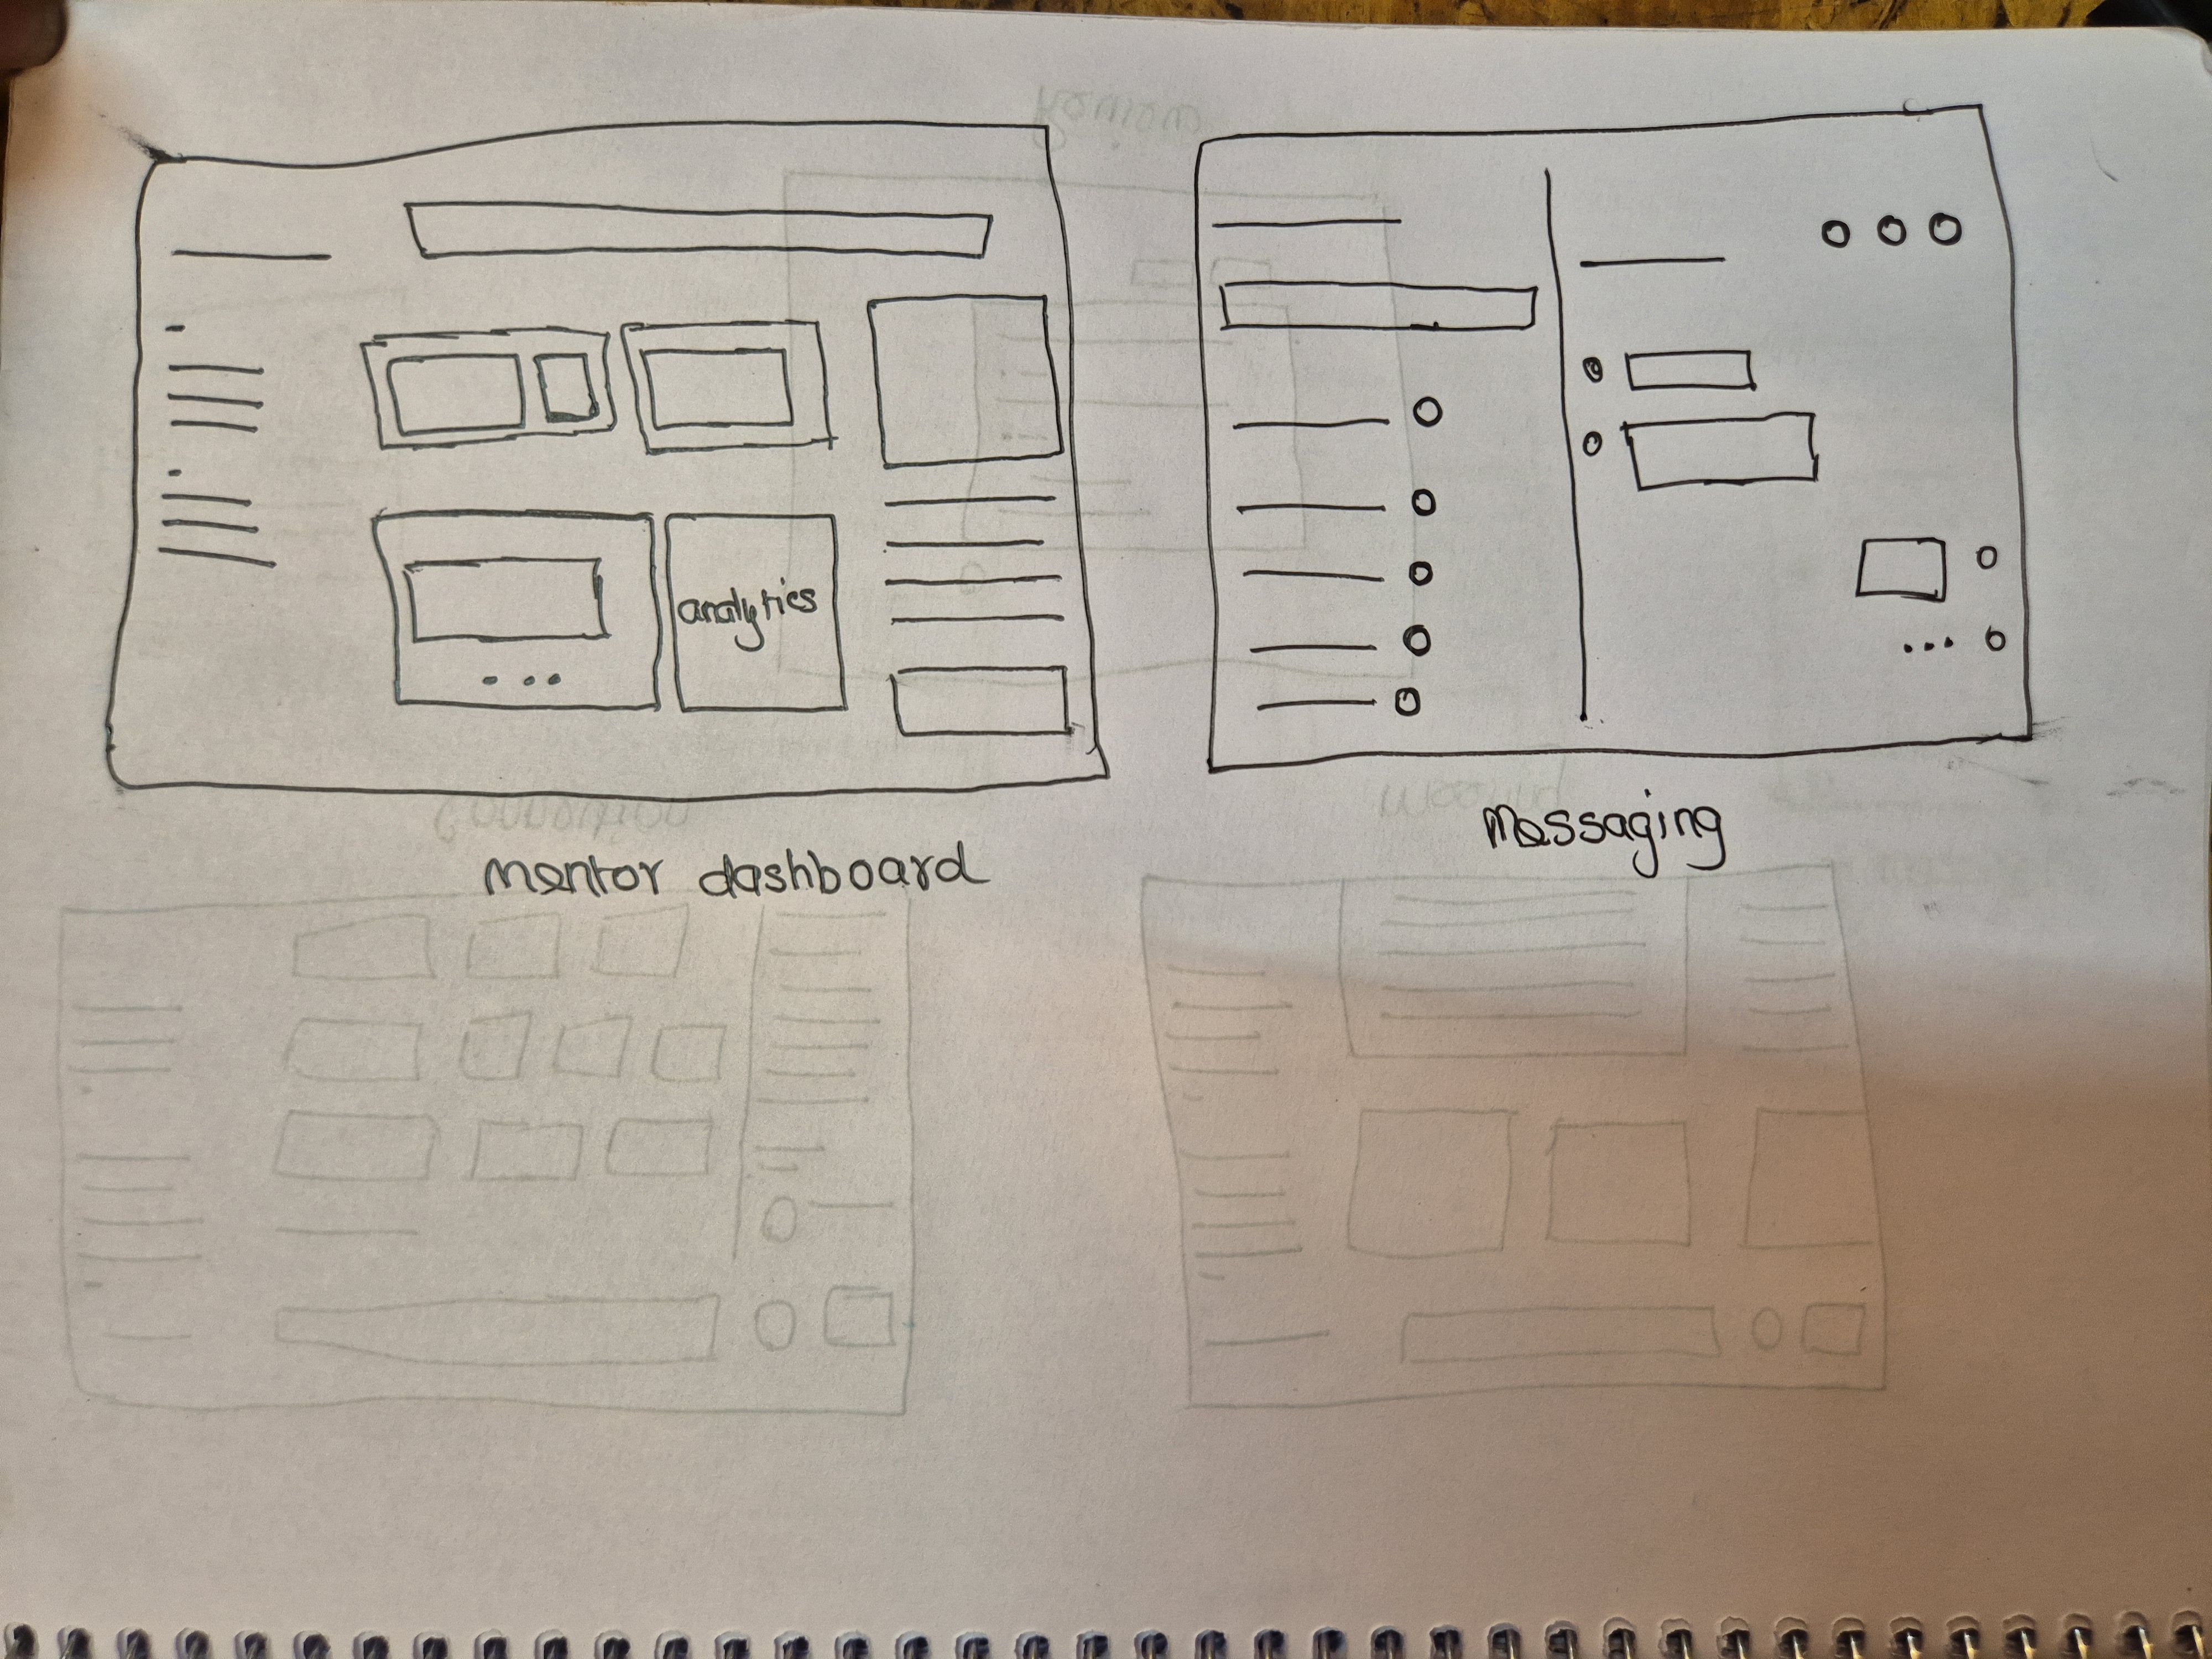 analytics
Mentor dashboard
Messaging